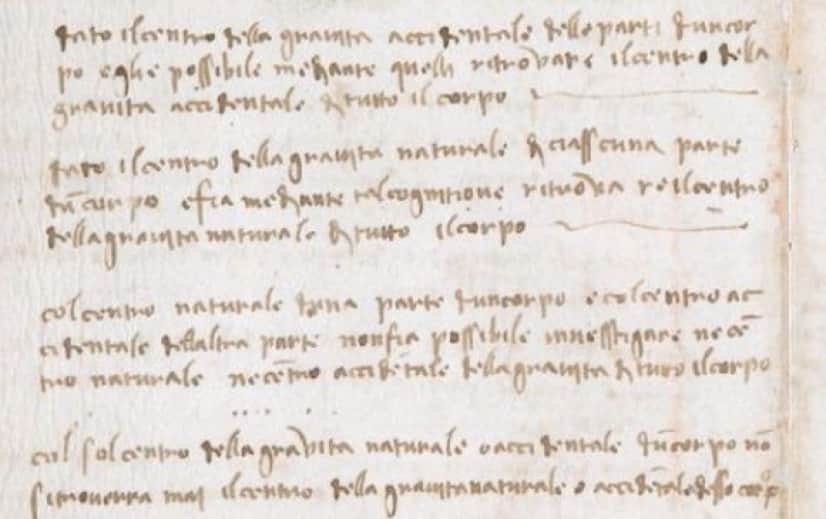 dato ilcentro della gravita accidentale delle parti duncor
po eglie possibile mediante quelli ritrovare ilcentro della
gravita accidentale di tutto il corpo
dato ilcentro della gravita naturale di ciasscuna parte
dū corpo efia mediante talcognitione ritrova re ilcentro
della gravita naturale di tutto ilcorpo
colcentro naturale duna parte duncorpo e colcentro ac
cidentale dellaltra parte nonfia possibile investigare ne cē
tro naturale ne cētro accidētale della gravita di tutto ilcorpo
col sol centro della gravita naturale o accidentale dū corpo nō
si troverra mai ilcentro della gravita naturale o accidētale desso corpo